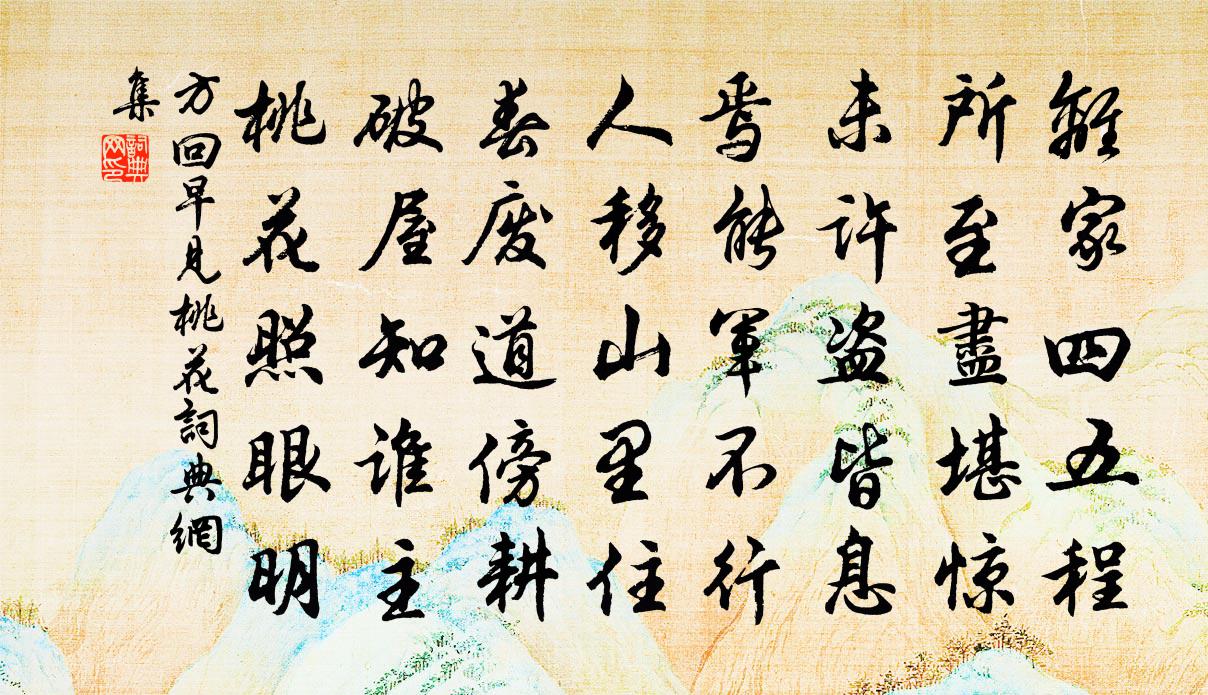 離家四五程
所至盡堪惊
未许盗皆息
焉能軍不行
人移山里住
春废道傍耕
破屋知谁主
桃花照眼明
方回早見桃花詞典網
集
詞典
网印